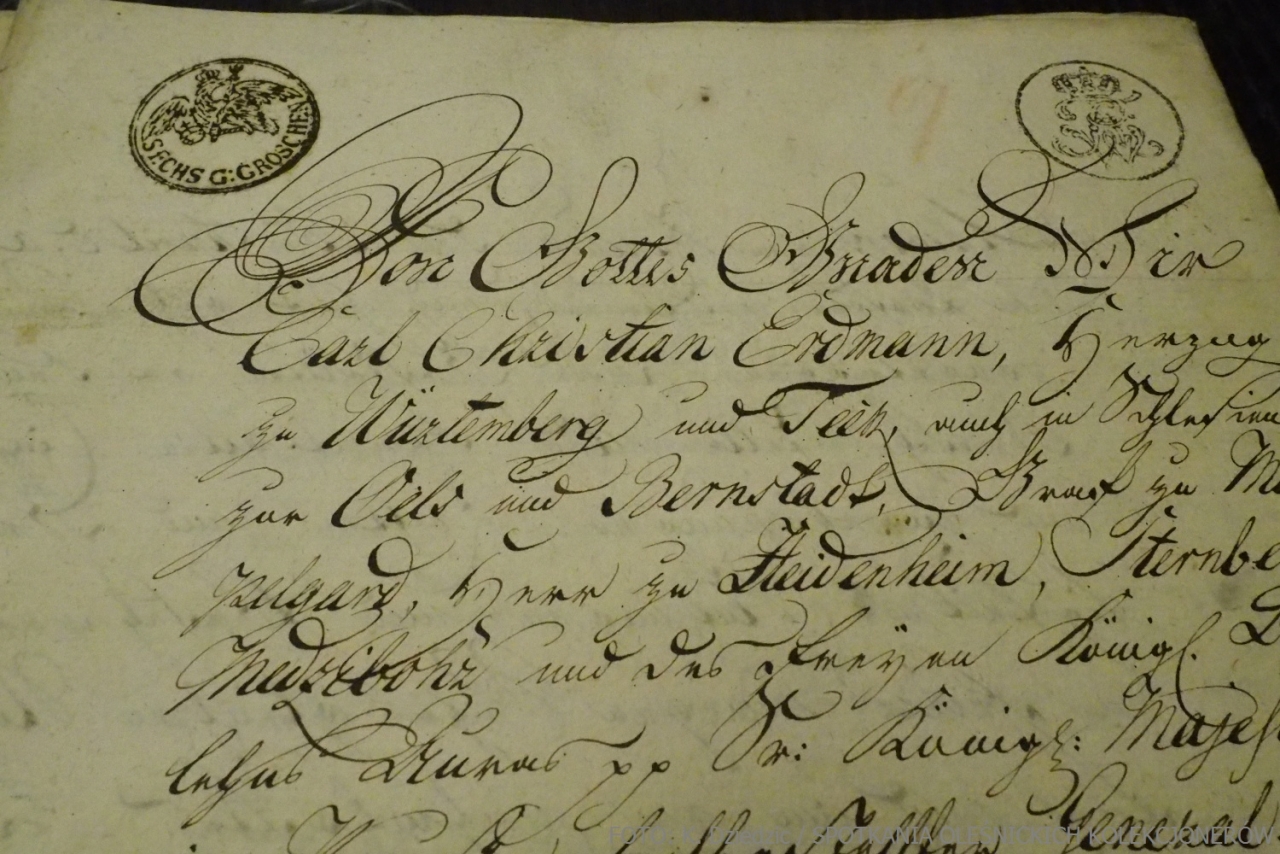 SECHS G: GROSCHEN
Von Gottes Gnaden Wir
Carl Christian Erdmann, Herzog
zu Würtemberg und Teck, auch in Schlesien
zur Oels und Bernstadt, Graf zu M
pelgard, Herr zu Heidenheim, Sternbe
Medzibohr und des Freyen Königl.
lehns Auras pp Sr: Königl: Majest
General
SPOTKANIA OLEŚNICKICH KOLEKCJONERÓW